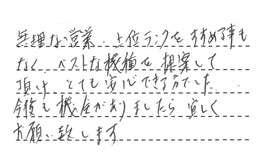 無理な営業、上位ランクをすすめる事も
なく、ベストな機種を提案して
頂け、とても安心できる方でした。
今後も機会がありましたら宜しく
お願い致します